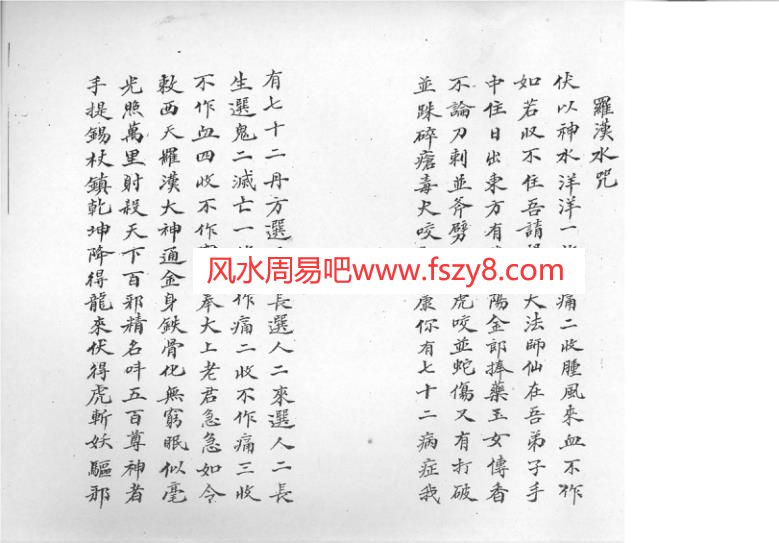 羅漢水咒
伏以神水洋洋一 痛二收腫風來血不作
如若收不住吾請 大法師仙在吾弟子手
中住日出東方有 陽金郎捧藥玉女傳香
不論刀刺並斧劈 虎咬並蛇傷又有打破
並跺碎瘡毒犬咬 康你有七十二病症我
有七十二丹方選 長選人二來選人二長
生選鬼二滅亡一 作痛二收不作痛三收
不作血四收不作 奉大上老君急急如令
敕西天羅漢大神通金身鉄骨化無窮眠似毫
光照萬里射殺天下百邪精名呌五百尊神者
手提錫杖鎮乾坤降得龍來伏得虎斬妖驅邪
风水周易吧www.fszy8.com